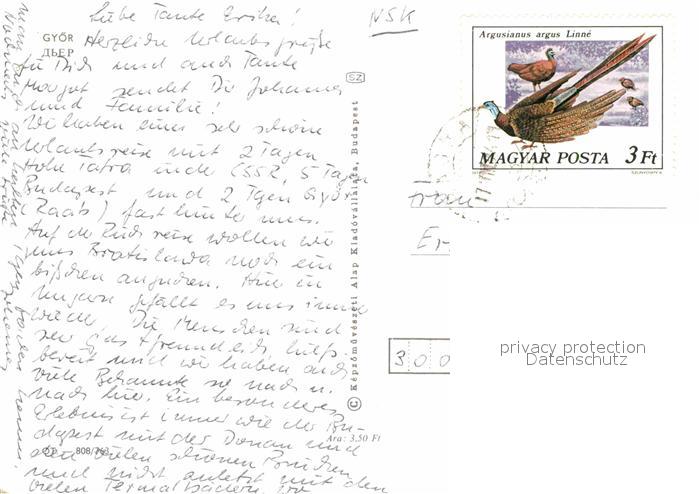 Liebe Tante Erika!
NSK
GYŐR
ДЬЕР
Herzliche Urlaubsgrüße
für Dich und auch Tante
Margot sendet Dir Johannes
und Familie!
Wir haben eine sehr schöne
Urlaubsreise mit 2 Tagen
Hohe Tatra in der ČSSR, 5 Tagen
Budapest und 2 Tgen Győr
(Raab) fast hinter uns.
Auf der Rückreise wollen wir
uns Bratislava noch ein
bißchen angucken. Hier in
Ungarn gefällt es uns immer
wieder. Die Menschen sind
sehr gast + freundlich, hilfs-
bereit und wir haben auch
viele Bekannte
hier. Ein besonderes
Erlebnis ist immer wieder Bu-
dapest mit der Donau und
den vielen schönen Brücken
und nicht zuletzt mit den
vielen Termalbädern, wo
Nochmals viele Grüße
SZ
© Képzőművészeti Alap Kiadóvállalata, Budapest
Ára: 3,50 Ft
808/763
Argusianus argus Linné
MAGYAR POSTA 3 Ft
Frau
Er
300
privacy protection
Datenschutz